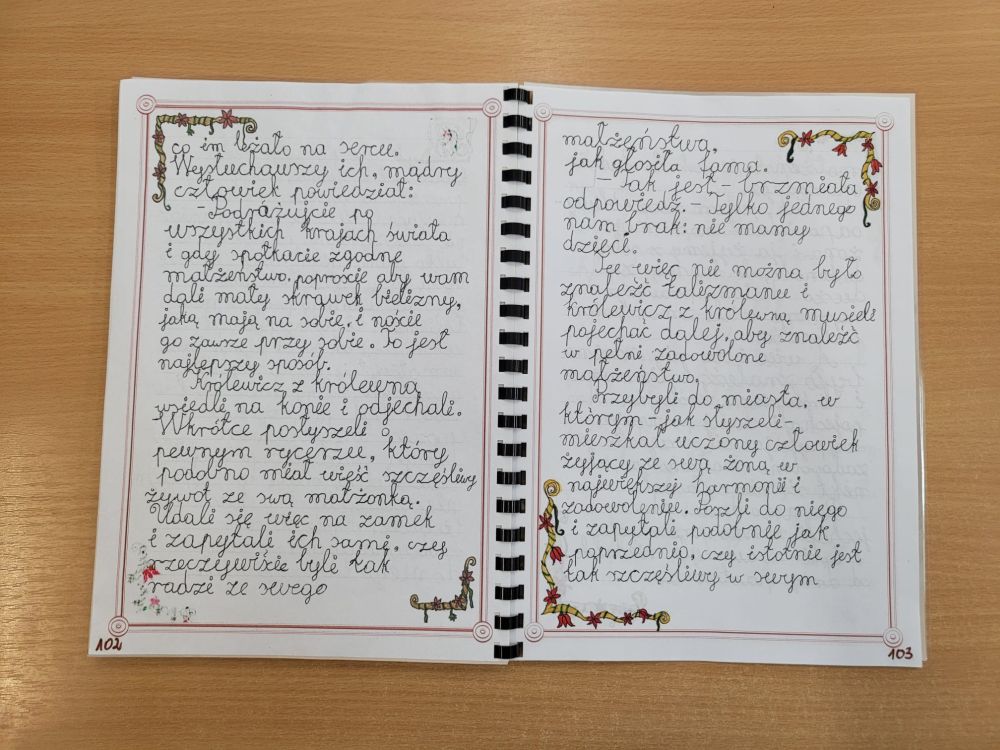 co im leżało na sercu.
Wysłuchawszy ich, mądry
człowiek powiedział:
- Podróżujcie po
wszystkich krajach świata
i gdy spotkacie zgodne
małżeństwo, poproście aby wam
dali mały skrawek bielizny,
jaką mają na sobie, i noście
go zawsze przy sobie. To jest
najlepszy sposób.
Królewicz z królewną
wsiedli na konie i odjechali.
Wkrótce posłyszeli o
pewnym rycerzu, który
podobno miał wieść szczęśliwy
żywot ze swą małżonką.
Udali się więc na zamek
i zapytali ich sami, czy
rzeczywiście byli tak
radzi ze swego
102
małżeństwa,
jak głosiła fama.
- Tak jest - brzmiała
odpowiedź. - Tylko jednego
nam brak: nie mamy
dzieci.
Tu więc nie można było
znaleźć talizmanu i
królewicz z królewną musieli
pojechać dalej, aby znaleźć
w pełni zadowolone
małżeństwo.
Przybyli do miasta, w
którym - jak słyszeli -
mieszkał uczony człowiek
żyjący ze swą żoną w
największej harmonii i
zadowoleniu. Poszli do niego
i zapytali podobnie jak
poprzednio, czy istotnie jest
tak szczęśliwy w swym
103